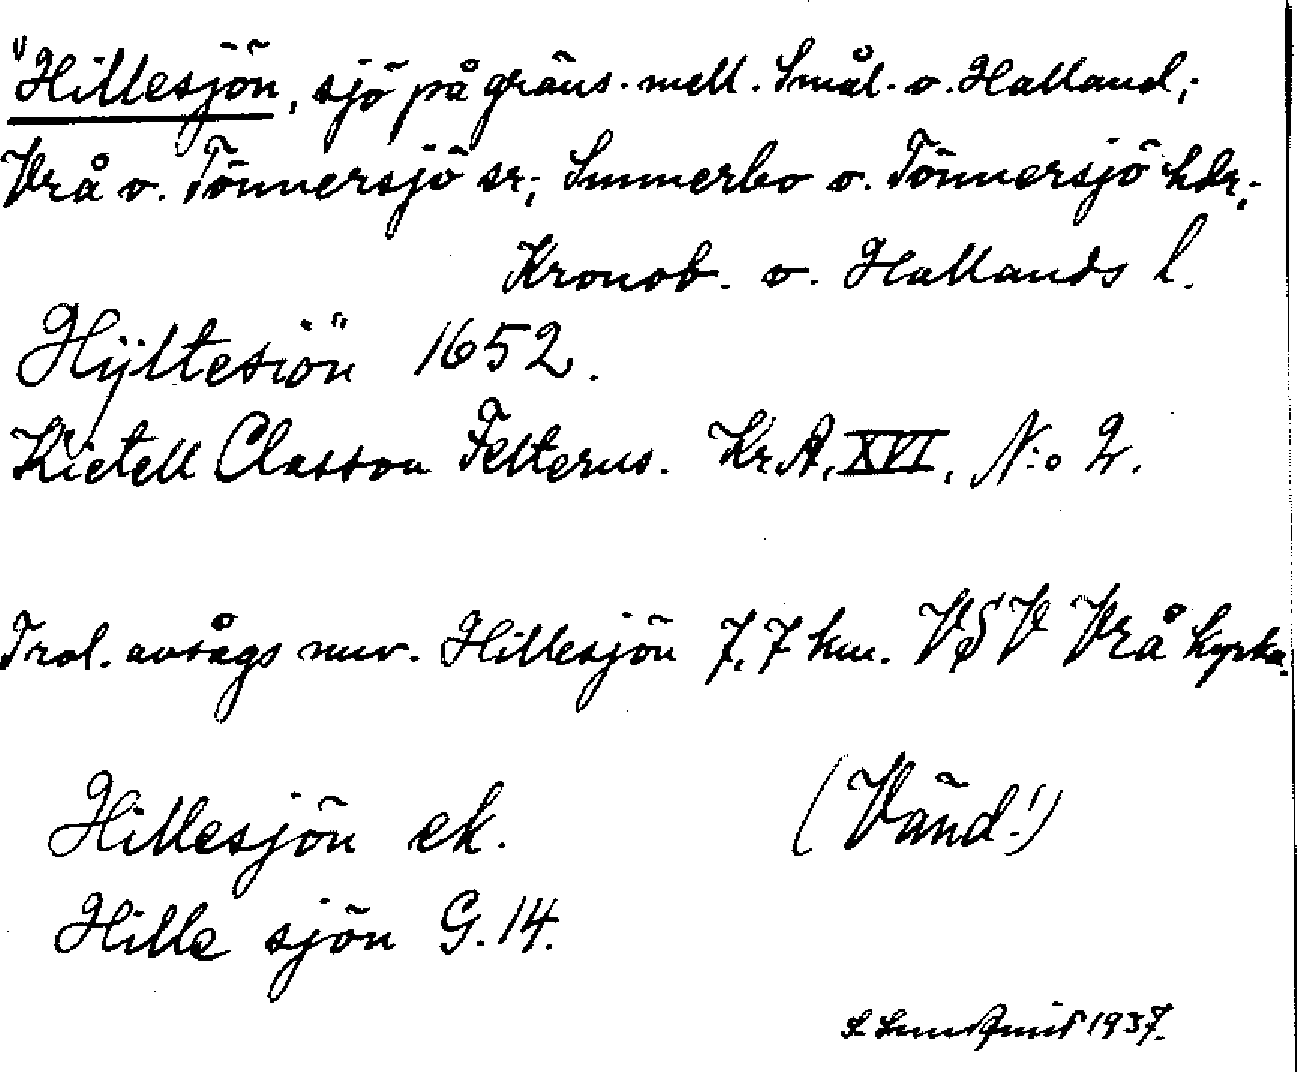 "Hillesjön, sjö på gräns. mell. Smål. o. Halland;
Vrå o. Tönnersjö sr; Sunnerbo o. Tönnersjö hdr;
Kronob. o. Hallands l.
Hÿltesiön 1652.
Kietell Classon Felterus. Kr.A. XVI, N:o 2.
Trol. avsågs nuv. Hillesjön 7,7 km. VSV Vrå kyrka.
Hillesjön ek. (Vänd!)
Hille sjön G. 14.
1937.